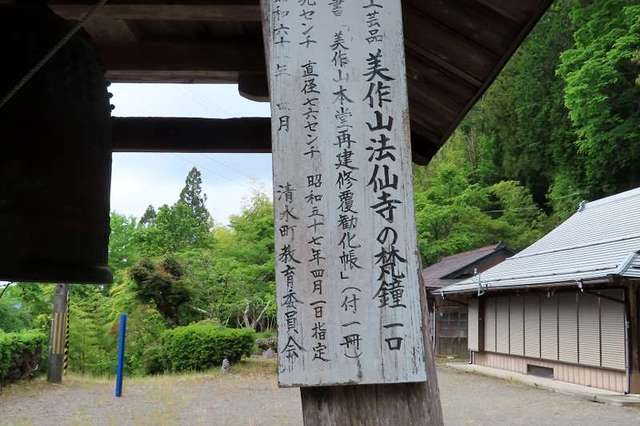 工芸品
美作山法仙寺の梵鐘 一口
書
美作山本堂再建修覆勧化帳」(付一冊)
センチ 直径七六センチ 昭和五十七年四月一日指定
昭和六十一年四月 清水町教育委員会